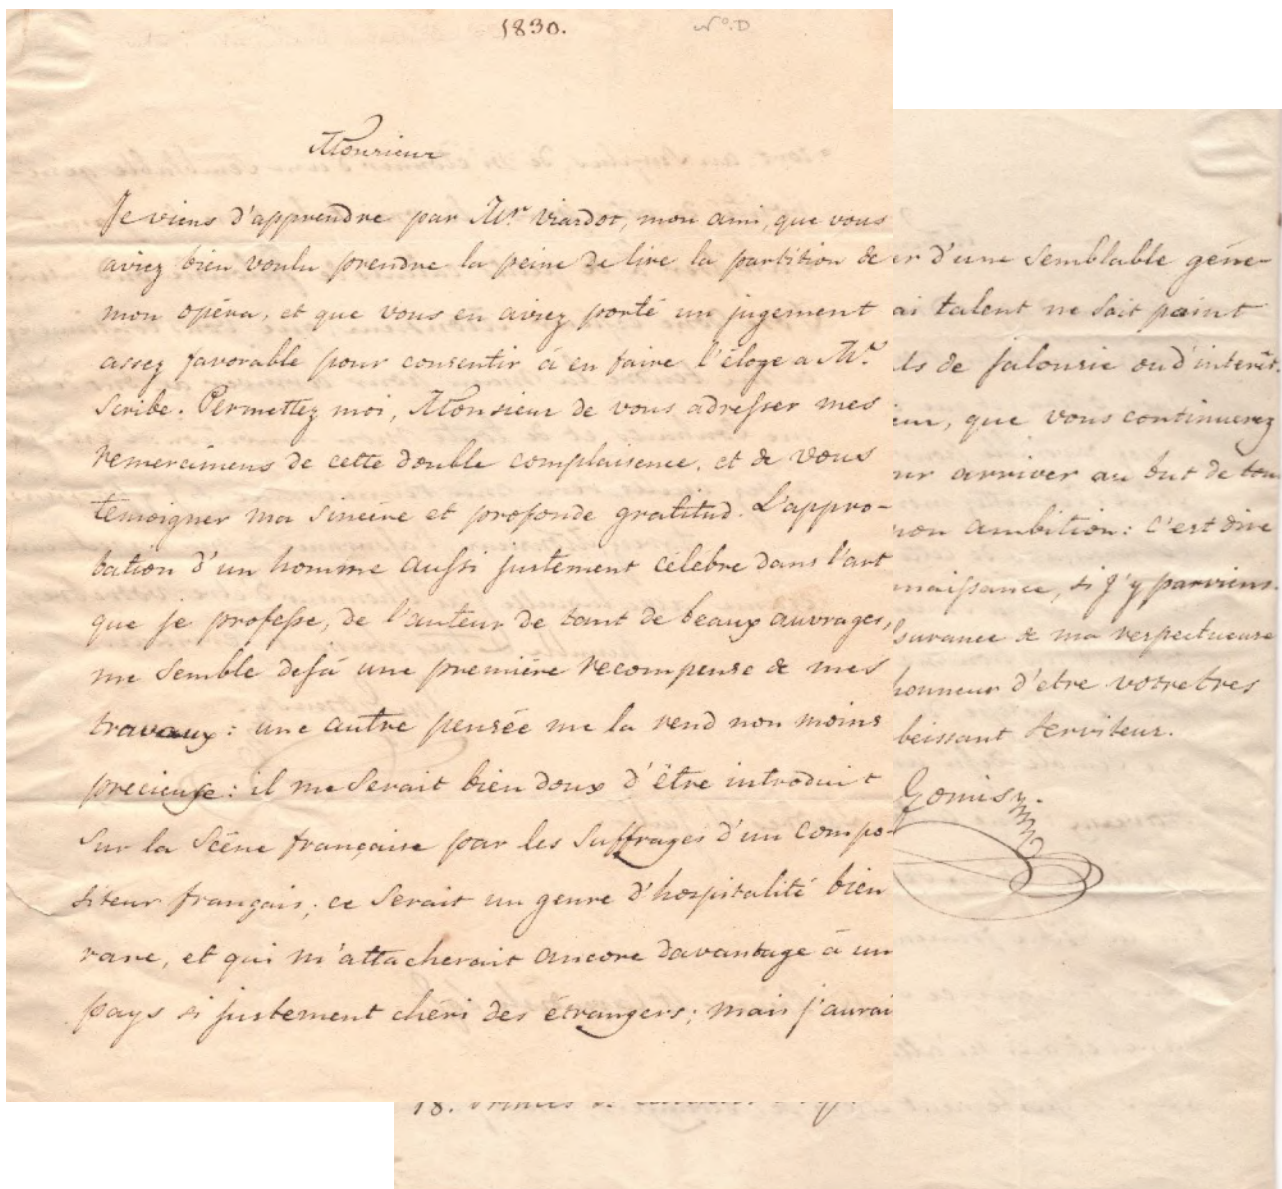 1830.
N°. D
Monsieur
Je viens d'apprendre par Mr. Viardot, mon ami, que vous
aviez bien voulu prendre la peine de lire la partition de
mon opéra, et que vous en aviez porté un jugement
assez favorable pour consentir à en faire l'éloge a Mr.
Scribe. Permettez moi, Monsieur de vous adresser mes
remercimens de cette double complaisence, et de vous
temoigner ma sincére et profonde gratitud. L'appro-
bation d'un homme aussi justement célébre dans l'art
que je professe, de l'auteur de tant de beaux auvrages,
me semble dejá une premiére recompense de mes
travaux: une autre pensée me la rend non moins
precieuse: il me Serait bien doux d'être introduit
Sur la Scéne française par les Suffrages d'un compo-
siteur français; ce Serait un genre d'hospitalité bien
rare, et qui m'attacherait ancore davantage à un
pays si justement chéri des étrangers; mais j'aurai
er d'une Semblable géne-
ai talent ne Soit point
ls de jalousie ou d'interêt.
eur, que vous continuerez
ur arriver au but de tou
non ambition: c'est dire
naissance, si j'y parviens.
surance de ma respectueuse
honneur d'etre votre tres
beissant Serviteur.
Gomis
18.